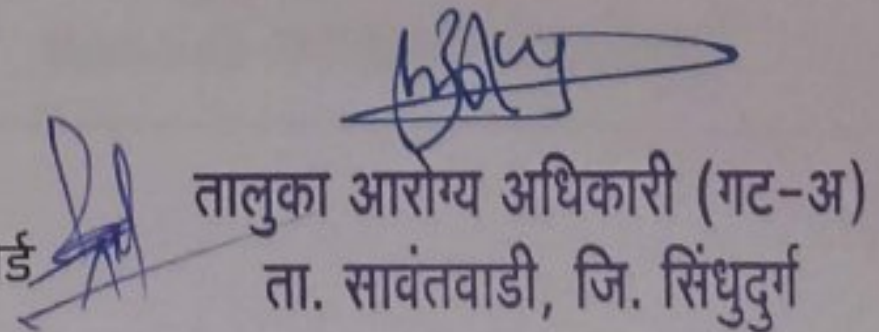 तालुका आरोग्य अधिकारी (गट-अ)
र्ड
ता. सावंतवाडी, जि. सिंधुदुर्ग